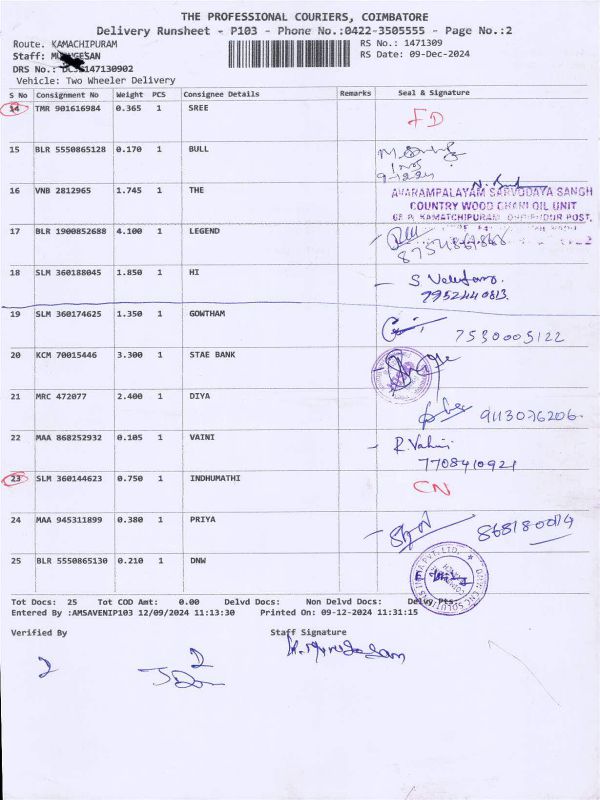 THE PROFESSIONAL COURIERS, COIMBATORE
Delivery Runsheet - P103 - Phone No.:0422-3505555 - Page No.:2
Route. KAMACHIPURAM
RS No.: 1471309
Staff:
RS Date: 09-Dec-2024
DRS No.: 147130902
Vehicle: Two Wheeler Delivery
S No Consignment No Weight PCS Consignee Details Remarks Seal & Signature
14 TMR 901616984 0.365 1 SREE FD
15 BLR 5550865128 0.170 1 BULL
16 VNB 2812965 1.745 1 THE
AVARAMPALAYAM SARVODAYA SANGH
COUNTRY WOOD GHANI OIL UNIT
KAMATCHIPURAM POST,
17 BLR 1900852688 4.100 1 LEGEND
18 SLM 360188045 1.850 1 HI
19 SLM 360174625 1.350 1 GOWTHAM 7530005122
20 KCM 70015446 3.300 1 STAE BANK
21 MRC 472077 2.400 1 DIYA 9113076206
22 MAA 868252932 0.105 1 VAINI
7708410921
23 SLM 360144623 0.750 1 INDHUMATHI CN
24 MAA 945311899 0.380 1 PRIYA
25 BLR 5550865130 0.210 1 DNW
Tot Docs: 25 Tot COD Amt: 0.00 Delvd Docs: Non Delvd Docs: Delvy Pts:
Entered By :AMSAVENIP103 12/09/2024 11:13:30 Printed On: 09-12-2024 11:31:15
Verified By Staff Signature